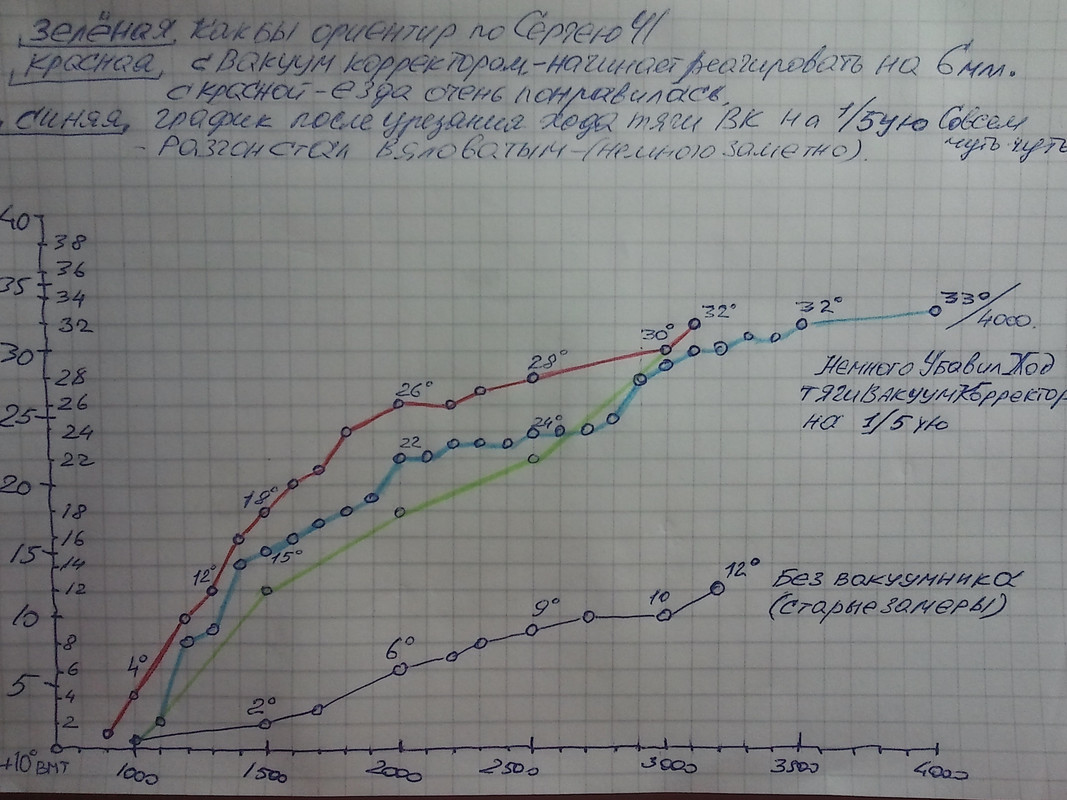 зелёная, какбы ориентир по Сергею Ч/
красная, с Вакуум корректором,-начинает реагировать на 6мм.
с красной-езда очень понравилась,
синяя, график после урезания хода тяги ВК на 1/5ую Совсем
чуть чуть
-Разгон стал Вяловатым-(немного заметно).
40
38
36
35
34
32
30
28
26
25
24
22
20
18
16
15
14
12
10
8
6
5
4
2
+10° ВМТ
4°
12°
18°
26°
28°
30°
32°
15°
22
24°
32°
33°/4000.
Немного Убавил Ход
тяги Вакуум Корректор
на 1/5ую
2°
6°
9°
10
12°
Без вакуумника
(старые замеры)
1000 1500 2000 2500 3000 3500 4000